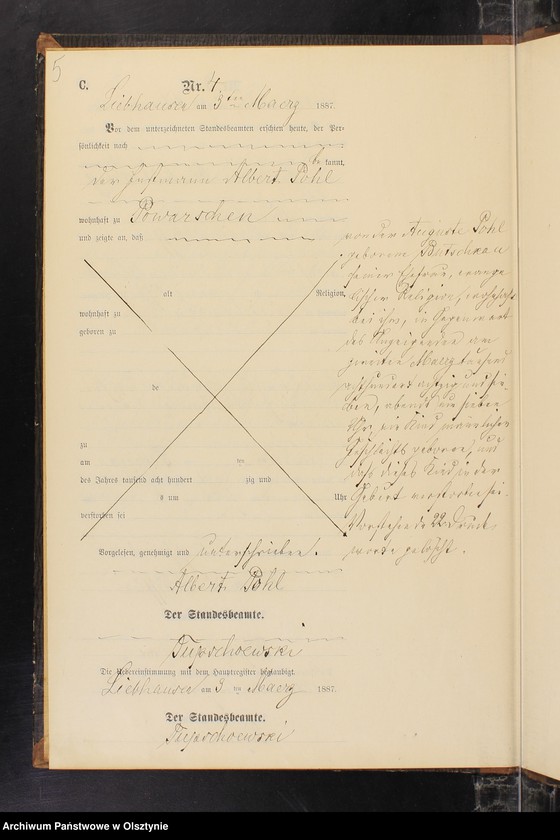 5
C.
Nr. 4
Liebhausen am 3ten Maerz 1887.
Vor dem unterzeichneten Standesbeamten erschien heute, der Per-
sönlichkeit nach
be kannt,
der Instmann Albert Pohl
wohnhaft zu Powarschen
und zeigte an, daß
von der Auguste Pohl
geborene Butschkau
seiner Ehefrau, evange
lischer Religion, wohnhaft
bei ihm, in Gegenwart
des Anzeigenden am
zweiten Maerz tausend
achthundert achtzig und sie-
ben, abends um sieben
Uhr, ein Kind männlichen
Geschlechts geboren, und
daß dieses Kind in der
Geburt verstorben sei.
Vorstehende 22 Druck
worte gelöscht.
alt Religion,
wohnhaft zu
geboren zu
de
zu
am ten
des Jahres tausend acht hundert zig und
s um Uhr
verstorben sei
Vorgelesen, genehmigt und unterschrieben.
Albert Pohl
Der Standesbeamte.
Die Uebereinstimmung mit dem Hauptregister beglaubigt.
Liebhausen am 3ten Maerz 1887.
Der Standesbeamte.
Archiwum Państwowe w Olsztynie